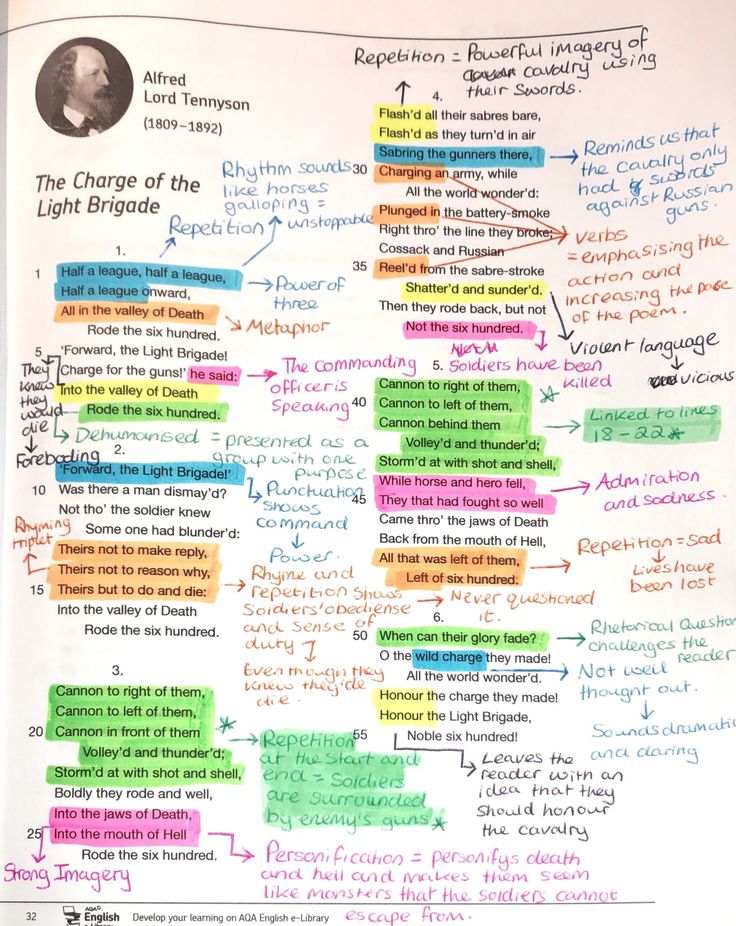 Alfred
Lord Tennyson
(1809–1892)
The Charge of the
Light Brigade
Rhythm sounds
like horses
galloping =
unstoppable
Repetition
1.
1 Half a league, half a league,
Half a league onward,
All in the valley of Death
Rode the six hundred.
5 'Forward, the Light Brigade!
Charge for the guns!' he said:
Into the valley of Death
Rode the six hundred.
Power of
three
Metaphor
The commanding
officer is
speaking
They
knew
they
would
die
Foreboding
Dehumanised = presented as a
group with one
purpose
2.
'Forward, the Light Brigade!'
10 Was there a man dismay'd?
Not tho' the soldier knew
Some one had blunder'd:
Theirs not to make reply,
Theirs not to reason why,
15 Theirs but to do and die:
Into the valley of Death
Rode the six hundred.
Punctuation
shows
command
Power.
Rhyming
triplet
Rhyme and
repetition shows
soldiers' obediense
and sense of
duty
Never questioned
it.
Even though they
knew they'de
die.
3.
Cannon to right of them,
Cannon to left of them,
20 Cannon in front of them
Volley'd and thunder'd;
Storm'd at with shot and shell,
Boldly they rode and well,
Into the jaws of Death,
25 Into the mouth of Hell
Rode the six hundred.
*
Repetition
at the start and
end = soldiers
are surrounded
by enemy's guns *
Strong Imagery
Personification = personifys death
and hell and makes them seem
like monsters that the soldiers cannot
escape from.
Repetition = Powerful imagery of
cavalry using
their swords.
4.
Flash'd all their sabres bare,
Flash'd as they turn'd in air
Sabring the gunners there,
30 Charging an army, while
All the world wonder'd:
Plunged in the battery-smoke
Right thro' the line they broke;
Cossack and Russian
35 Reel'd from the sabre-stroke
Shatter'd and sunder'd.
Then they rode back, but not
Not the six hundred.
Reminds us that
the cavalry only
had swords
against Russian
guns.
verbs
= emphasising the
action and
increasing the pace
of the poem.
Violent language
vicious
Soldiers have been
killed
5.
Cannon to right of them,
40 Cannon to left of them,
Cannon behind them
Volley'd and thunder'd;
Storm'd at with shot and shell,
While horse and hero fell,
45 They that had fought so well
Came thro' the jaws of Death
Back from the mouth of Hell,
All that was left of them,
Left of six hundred.
*
Linked to lines
18 - 22 *
Admiration
and sadness.
Repetition = Sad
Lives have
been lost
6.
50 When can their glory fade?
O the wild charge they made!
All the world wonder'd.
Honour the charge they made!
Honour the Light Brigade,
55 Noble six hundred!
Rhetorical Question
challenges the
reader
Not well
thought out.
Sounds dramatic
and daring
Leaves the
reader with an
idea that they
should honour
the cavalry
32
AQA
English
Develop your learning on AQA English e-Library